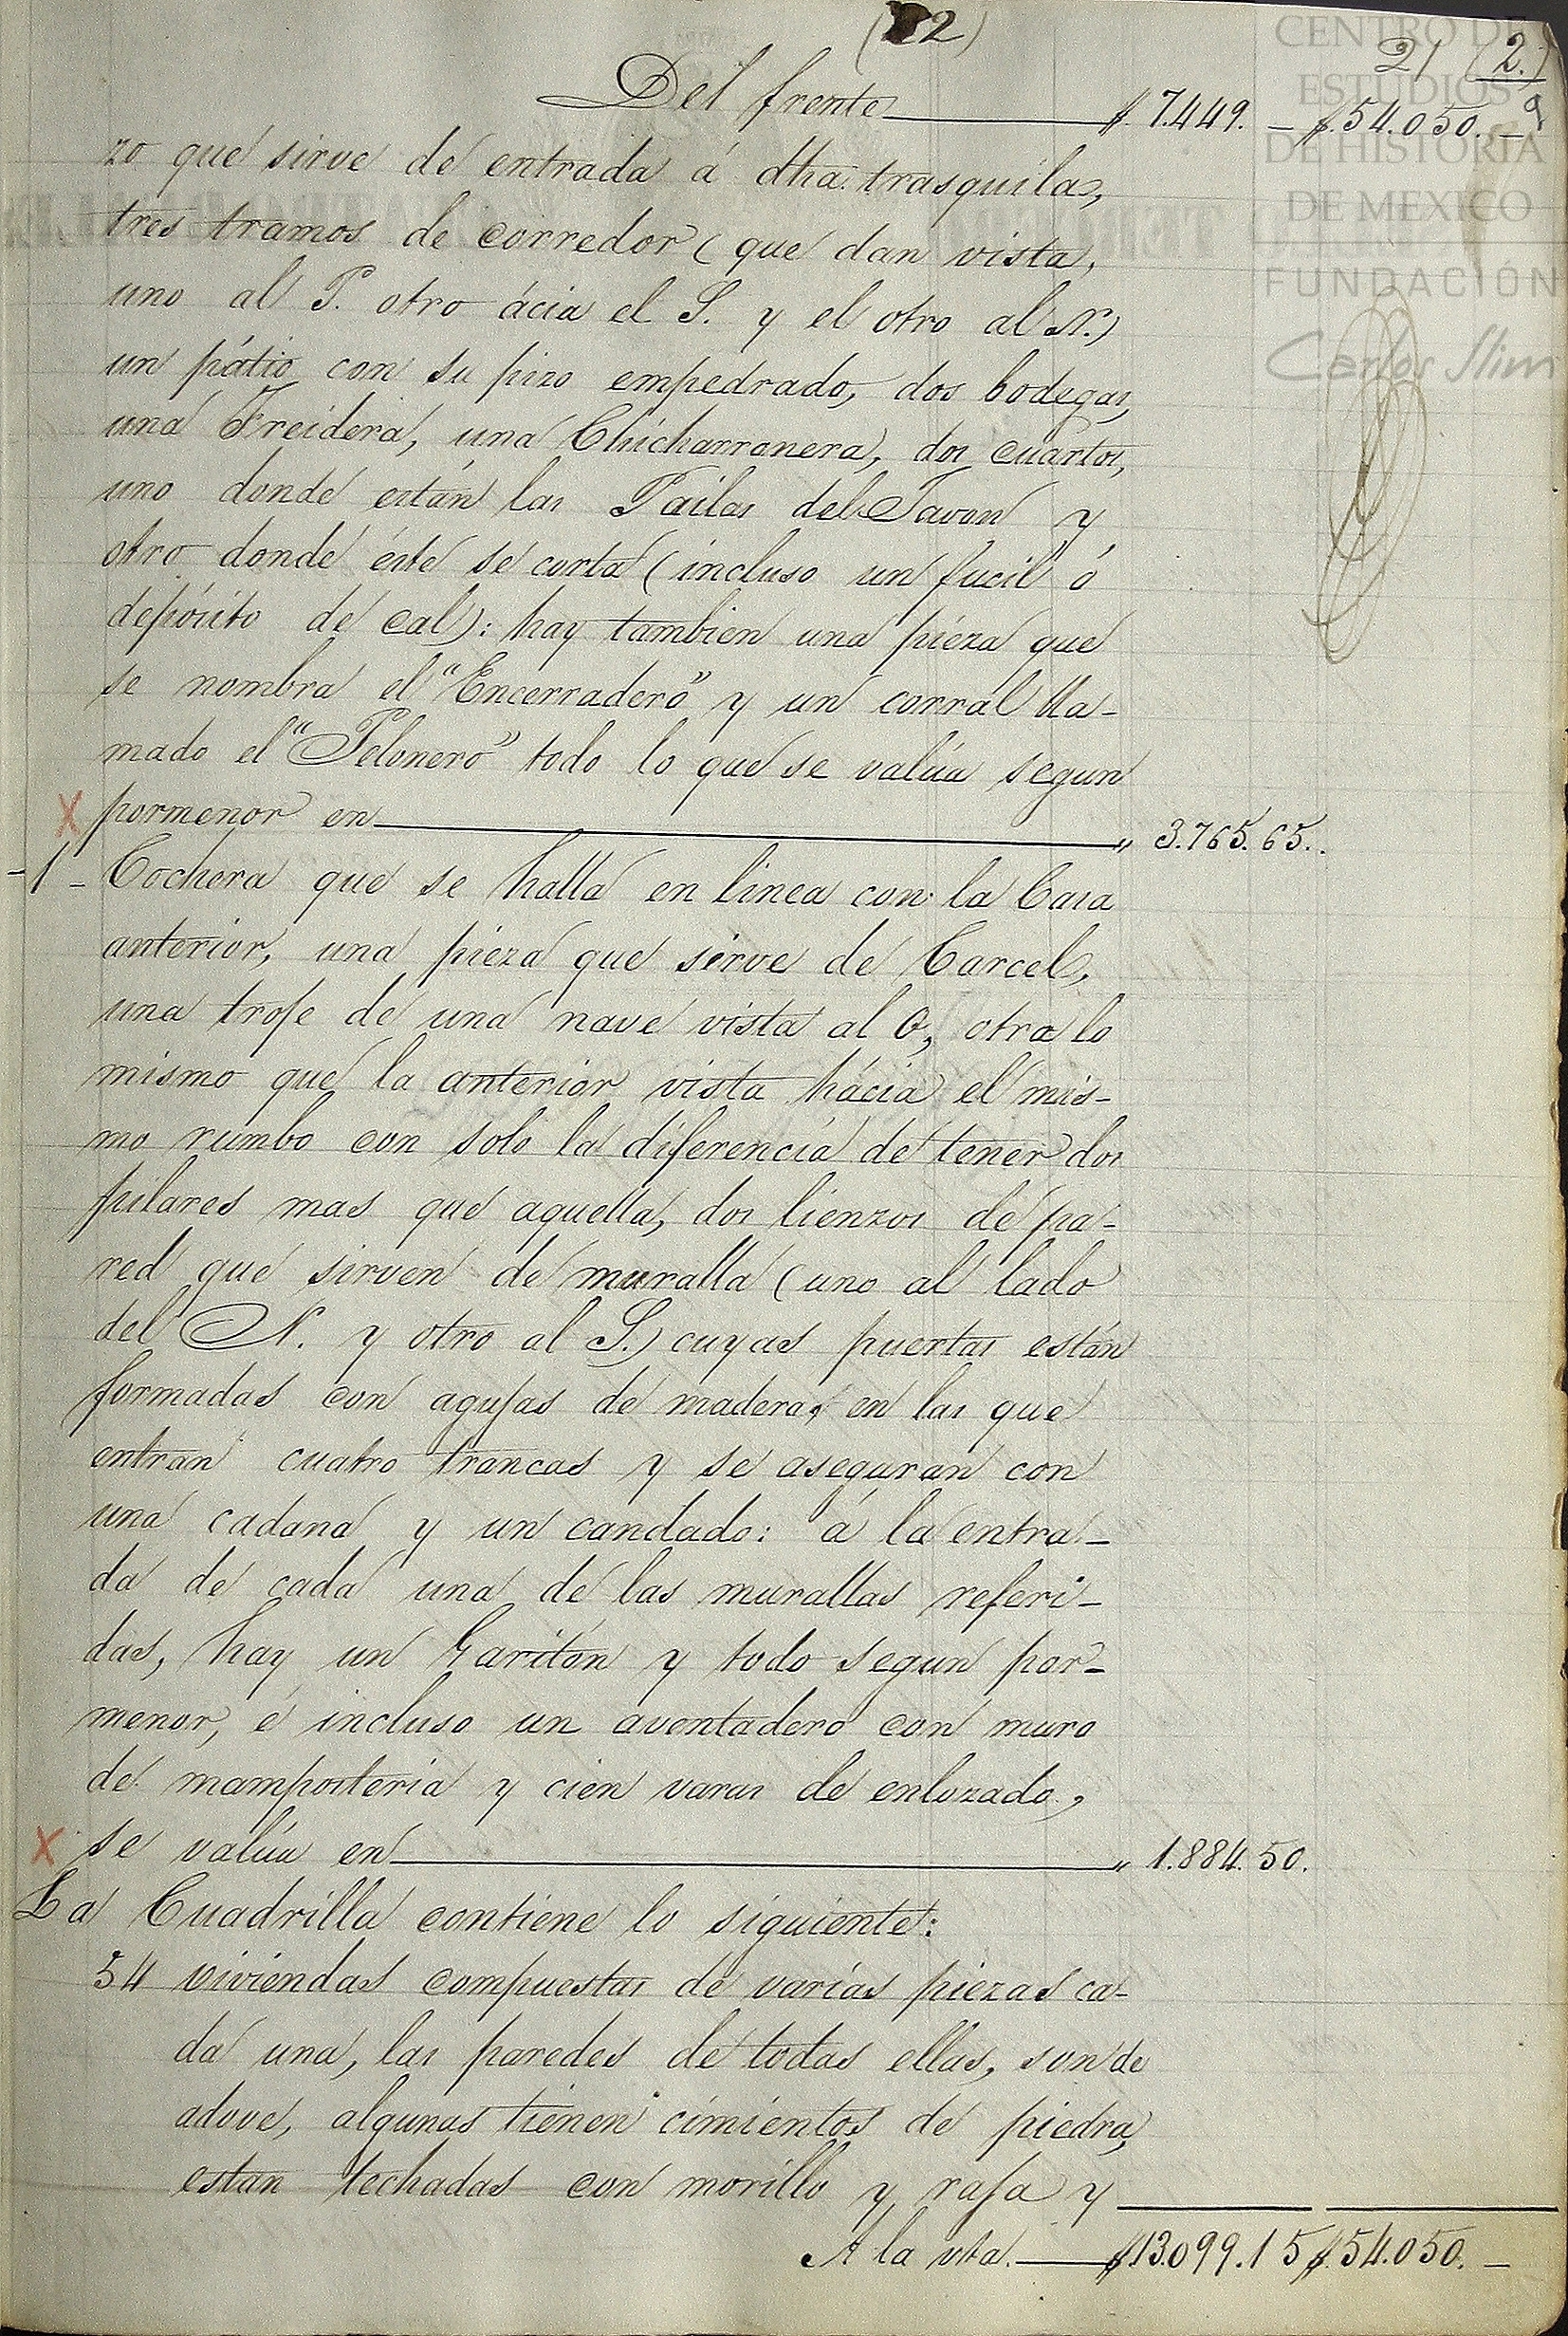 (22) 21 (2.)
Del frente $.7.449. — $.54.050.—
zo que sirve de entrada á dha. trasquila,
tres tramos de corredor (que dan vista,
uno al P. otro ácia el S. y el otro al N.)
un pátio con su pizo empedrado, dos bodegas,
una Freidera, una Chicharronera, dos cuartos,
uno donde están las Pailas del Javon y
otro donde éste se corta (incluso un fucil ó
depósito de cal): hay tambien una pieza que
se nombra el "Encerradero" y un corral lla-
mado el "Pelonero" todo lo que se valúa segun
X pormenor en „ 3.765.65..
-1- Cochera que se halla en linea con la Casa
anterior, una pieza que sirve de Carcel,
una troje de una nave vista al O, otra lo
mismo que la anterior vista hácia el mis-
mo rumbo con solo la diferencia de tener dos
pilares mas que aquella, dos lienzos de pa-
red que sirven de muralla (uno al lado
del N. y otro al S.) cuyas puertas están
formadas con agujas de madera, en las que
entran cuatro trancas y se aseguran con
una cadana y un candado: á la entra-
da de cada una de las murallas referi-
das, hay un Garitón y todo segun por-
menor, é incluso un aventadero con muro
de mamposteria y cien varas de enlozado,
X se valúa en „ 1.884.50.
La Cuadrilla contiene lo siguiente:
54 viviendas compuestas de varias piezas ca-
da una, las paredes de todas ellas, son de
adove, algunas tienen cimientos de piedra,
estan techadas con morillo y raja y
A la vta. $13.099.15 $.54.050.—
CENTRO DE
ESTUDIOS
DE HISTORIA
DE MEXICO
FUNDACIÓN
Carlos Slim